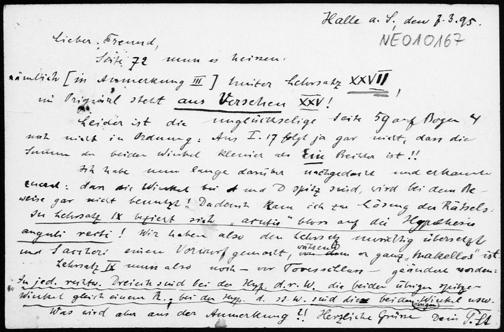 Halle a. S., den 7.3.95.
NE010167
Lieber Freund,
Seite 72 muss es heissen:
nämlich [in Anmerkung III] hinter Lehrsatz XXVII,
im Original steht aus Versehen XXV!
Leider ist die unglückselige Seite 59 auf Bogen 4
noch nicht in Ordnung: Aus I. 17 folgt ja gar nicht, dass die
Summe der beiden Winkel kleiner als Ein Rechter ist!!
Ich habe nun lange darüber nachgedacht und erkannt
dass die Winkel bei A und D spitz sind, wird bei dem Be-
weise gar nicht benutzt! Dadurch kam ich zur Lösung des Rätsels.
In Lehrsatz IX bezieht sich "acutis" bloss auf die Hypothesis
anguli recti! Wir haben also den Lehrsatz unrichtig übersetzt
und Saccheri einen Vorwurf gemacht, während er ganz "makellos" ist.
Lehrsatz IX muss also noch - vor Thoresschluss - geändert werden:
In jed. rechtw. Dreieck sind bei der Hyp. d. r. W. die beiden übrigen spitzen
Winkel gleich einem R., bei der Hyp. d. st. W. sind die beiden Winkel usw.
Was wird aber aus der Anmerkung?! Herzliche Grüsse Dein P. St